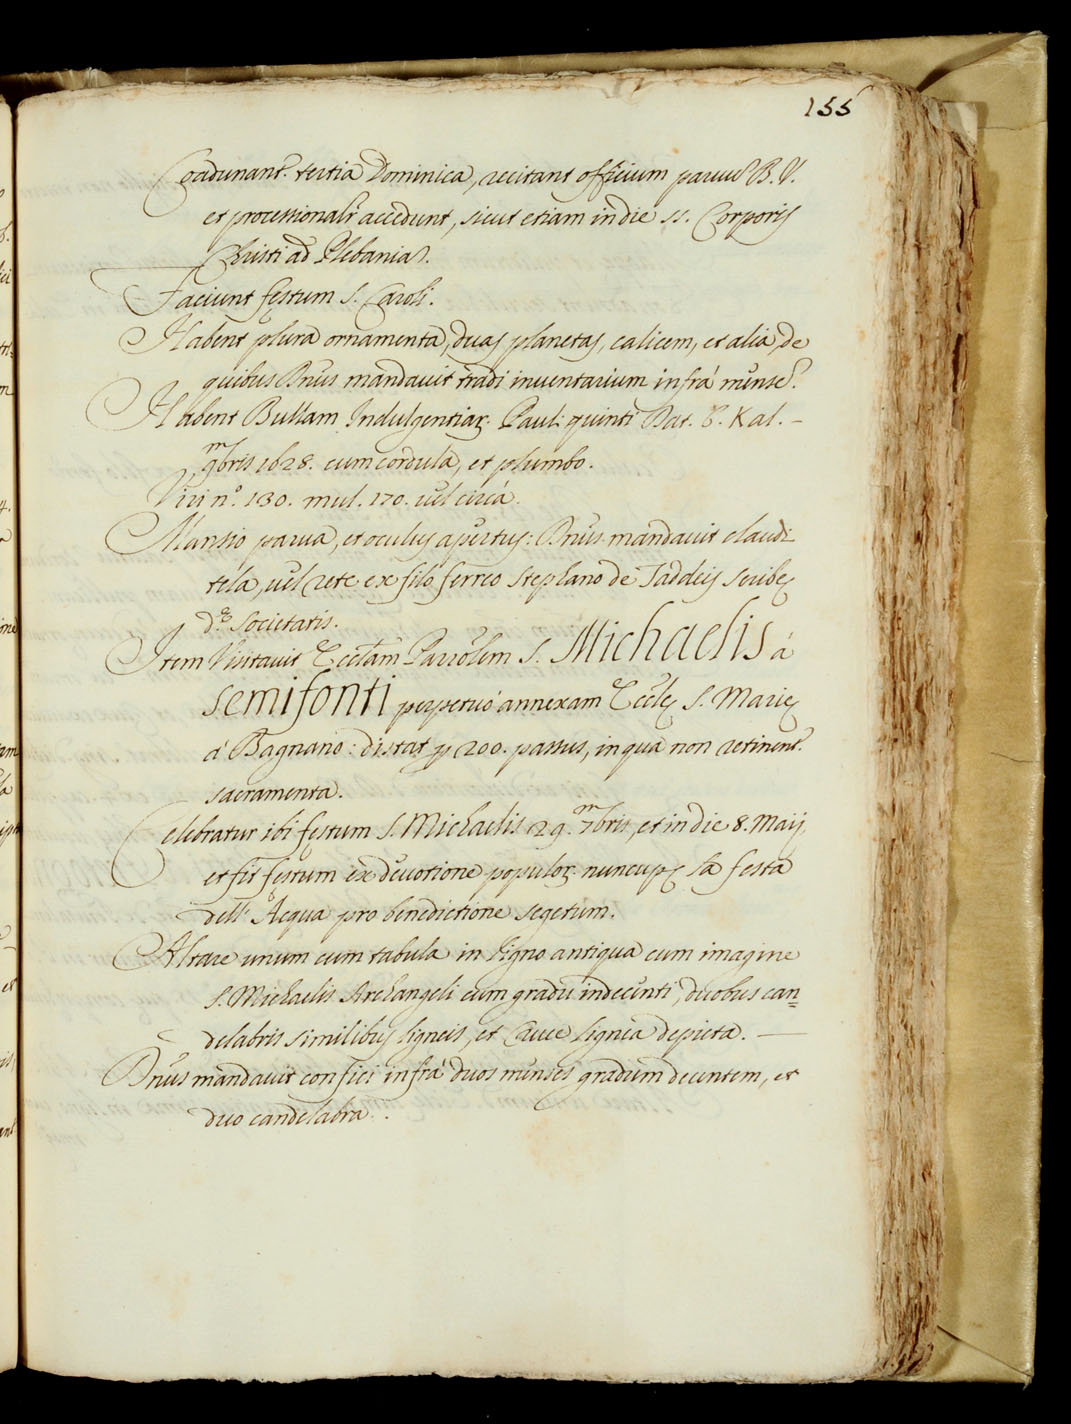 155
Coadunant.r tertia Dominica, recitant officium paruū B. V.
et processionalr accedunt, sicut etiam in die SS. Corporis
Christi ad Plebanias.
Faciunt festum S. Caroli.
Habent plura ornamenta, duas planetas, calicem, et alia, de
quibus Dnus mandauit tradi inuentarium infrà mensē.
Habent Bullam Indulgentiaꝝ. Pauli quinti Dat. 8. Kal. -
9mbris 1628. cum cordula, et plumbo.
Viri n.º 130. mul. 170. uel circà.
Mansio parua, et oculus apertus: Dnus mandauit claudi
tela, uel rete ex filo ferreo Stephano de Taddeis scribę
d.ę societatis.
Item Visitauit Eccłam Parrōlem S. Michaelis à
semifonti perpetuò annexam Eccłę S. Marię
à Bagnano: distat p 200. passus, in qua non retinent.r
sacramenta.
Celebratur ibi festum S. Michaelis 29. 7mbris, et in die 8. Maij,
et fit festum ex deuotione populoꝝ. nuncup. la festa
dell' Acqua pro benedictione segetum.
Altare unum cum tabula in ligno antiqua cum imagine
S. Michaelis Archangeli cum gradu indecenti, duobus can=
delabris similibus ligneis, et Cruce lignea depicta. —
Dnus mandauit confici infrà duos menses gradum decentem, et
duo candelabra.